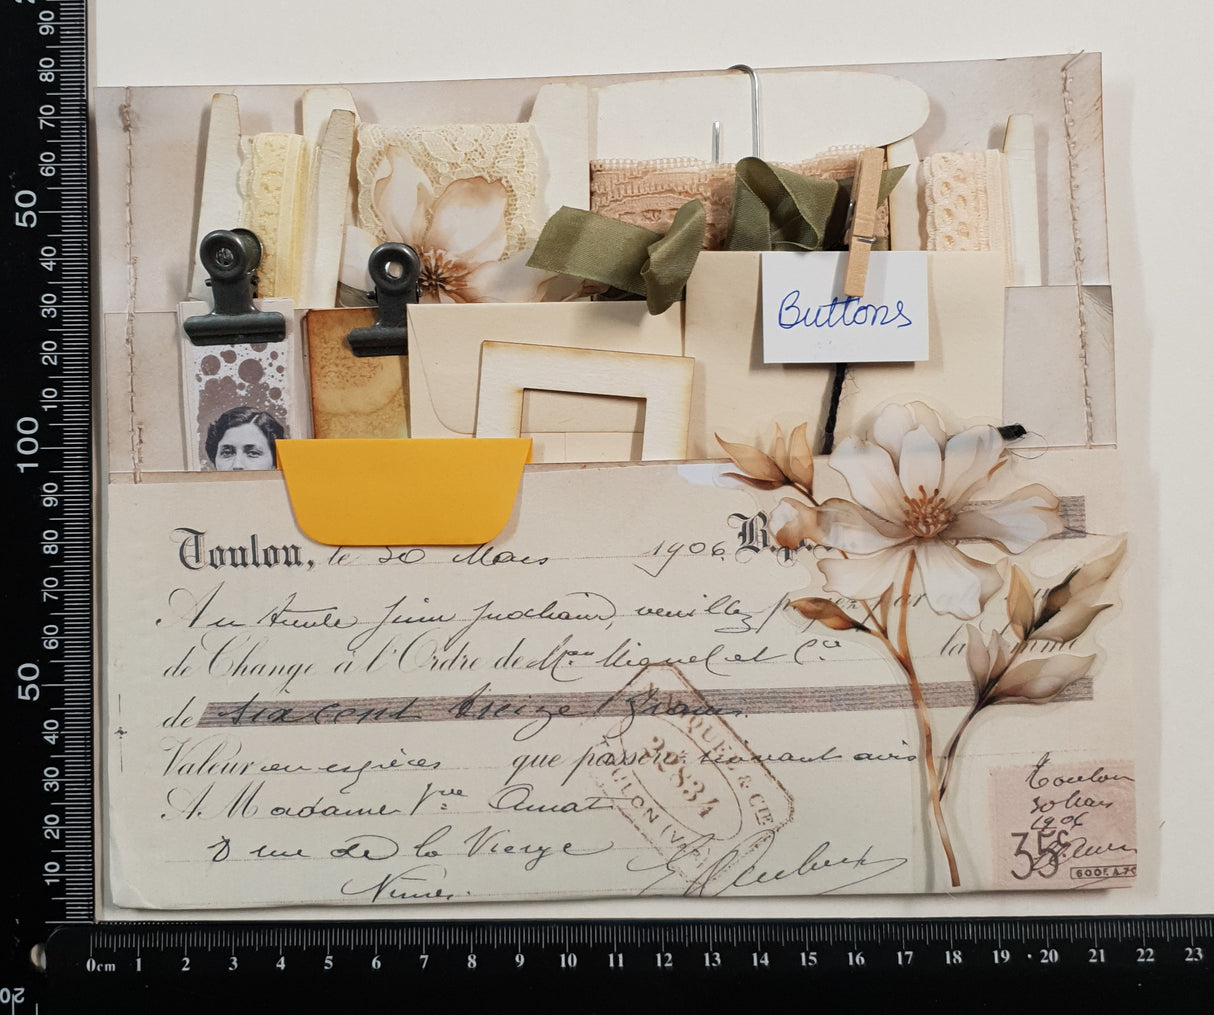 Buttons
Toulon, le 30 Mars 1906. B.
Au trente Juin prochain, veuillez payer par
de Change à l'Ordre de Mon Miguel et Cie la somme
de six cent treize francs.
Valeur en espèces que passerez suivant avis
A Madame Vve Amat
8 rue de la Vierge
Nimes.
& CIE
32834
TOULON (Var)
Toulon
30 Mars
1906
35c
600F. A 7
0cm 1 2 3 4 5 6 7 8 9 10 11 12 13 14 15 16 17 18 19 20 21 22 23
90
80
70
60
50
40
30
20
10
100
90
80
70
60
50
40
30
20
10
20